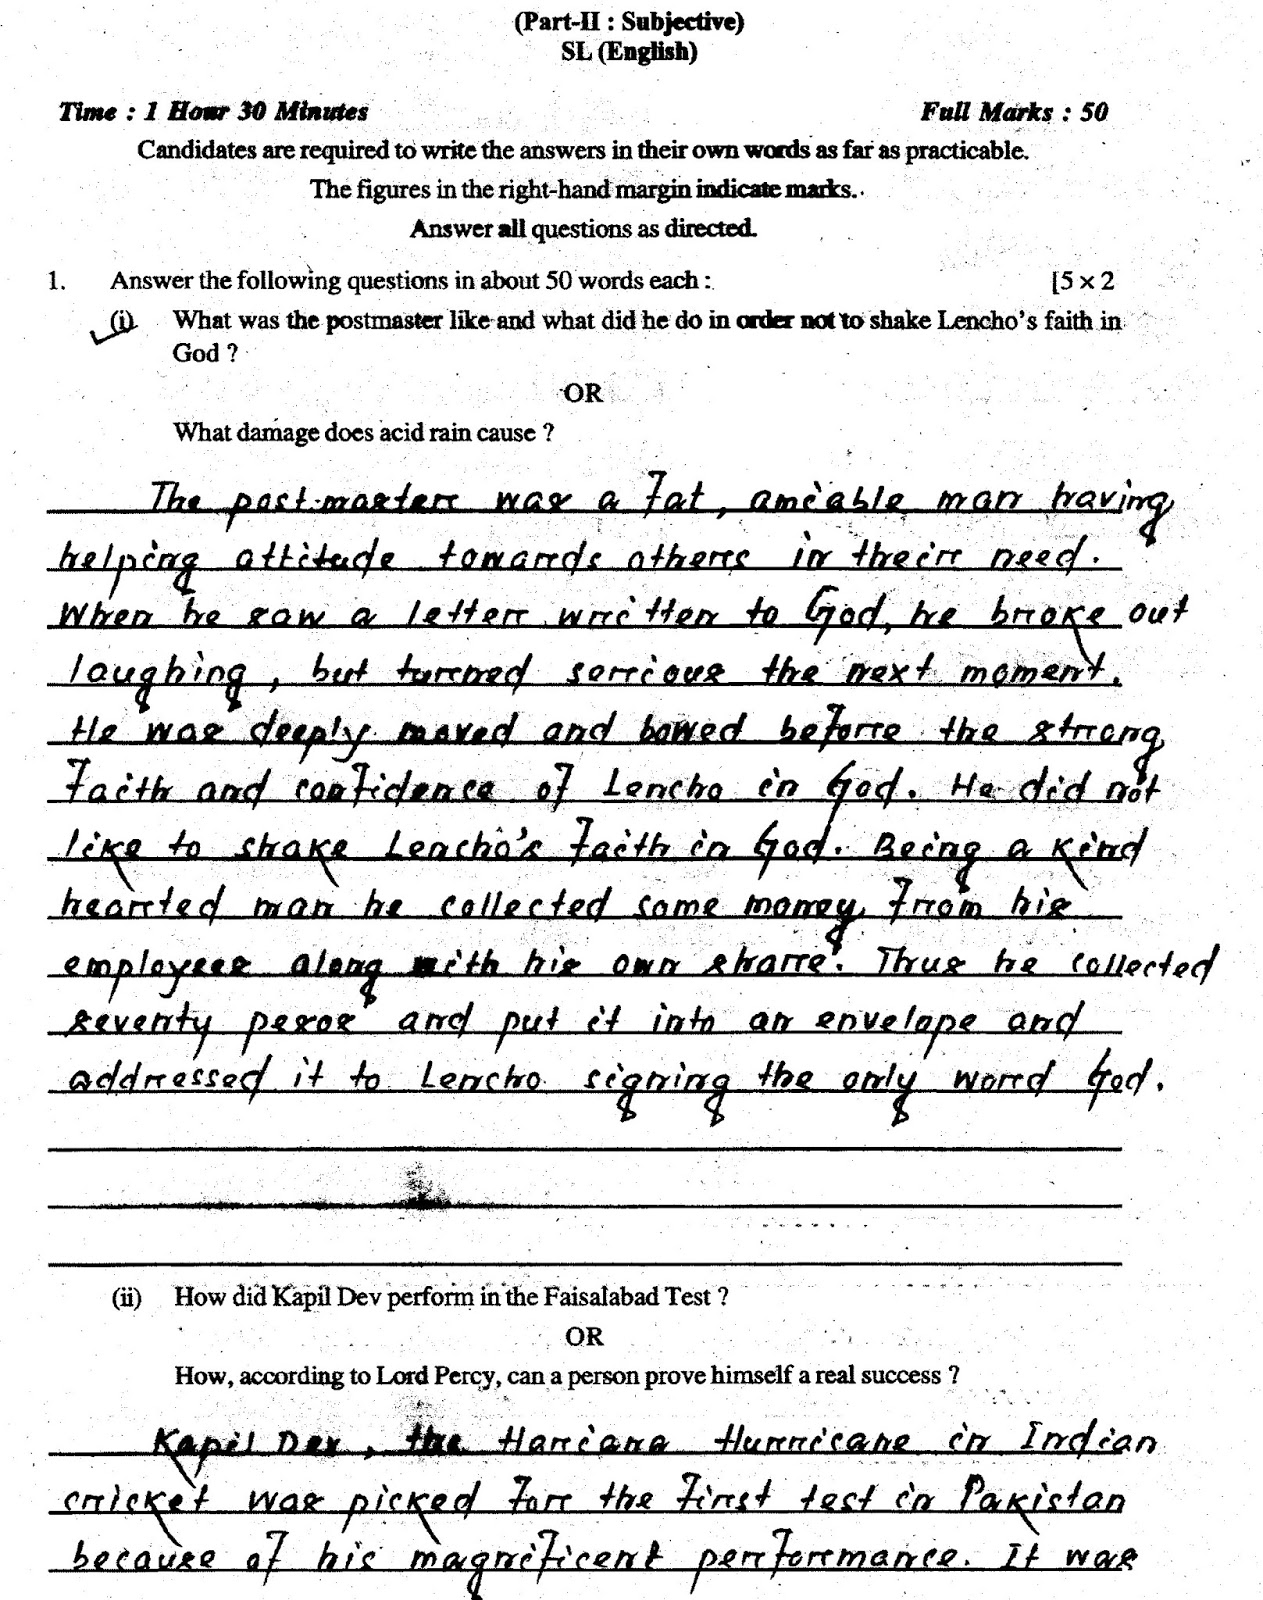 (Part-II : Subjective)
SL (English)
Time : 1 Hour 30 Minutes Full Marks : 50
Candidates are required to write the answers in their own words as far as practicable.
The figures in the right-hand margin indicate marks.
Answer all questions as directed.
1. Answer the following questions in about 50 words each : [5 × 2
(i) What was the postmaster like and what did he do in order not to shake Lencho's faith in
God ?
OR
What damage does acid rain cause ?
The post-master was a fat, amiable man having
helping attitude towards others in their need.
When he saw a letter written to God, he broke out
laughing, but turned serious the next moment.
He was deeply moved and bowed before the strong
faith and confidence of Lencho in God. He did not
like to shake Lencho's faith in God. Being a kind
hearted man he collected some money from his
employees along with his own share. Thus he collected
seventy pesos and put it into an envelope and
addressed it to Lencho signing the only word God.
(ii) How did Kapil Dev perform in the Faisalabad Test ?
OR
How, according to Lord Percy, can a person prove himself a real success ?
Kapil Dev, the Hariana Hurricane in Indian
cricket was picked for the first test in Pakistan
because of his magnificent performance. It was